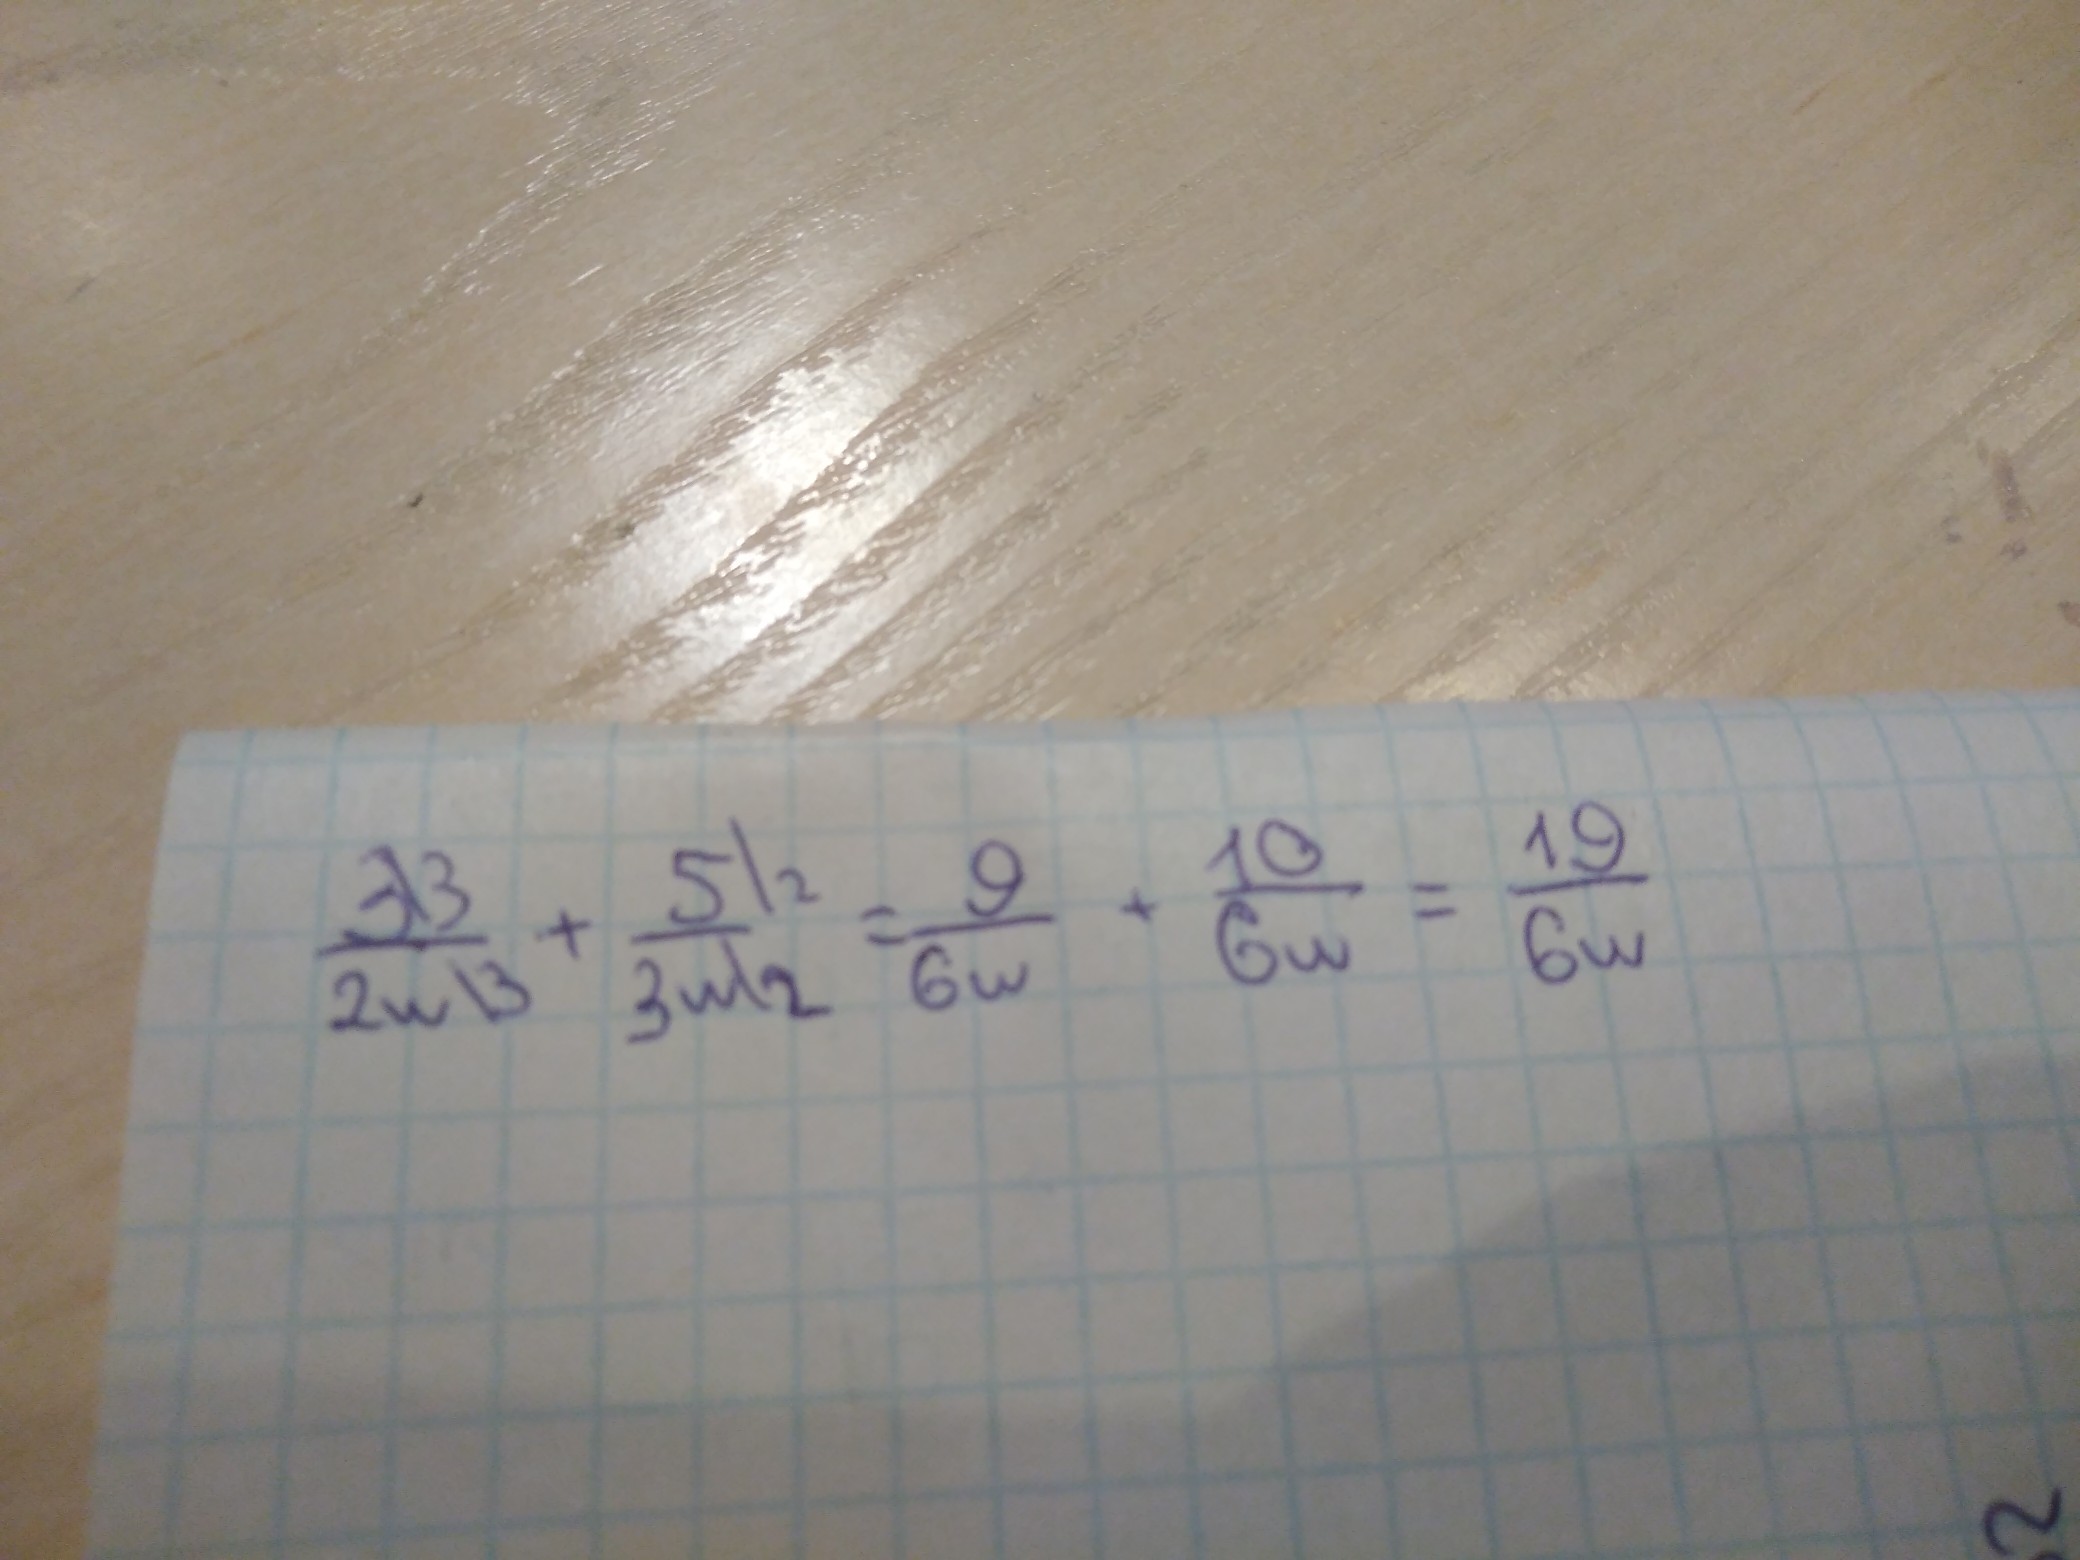 3\3/2w\3 + 5\2/3w\2 = 9/6w + 10/6w = 19/6w
2